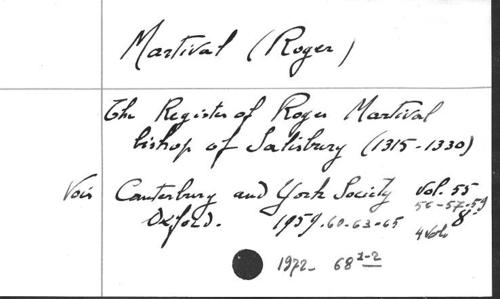 Martival (Roger)
The Register of Roger Martival
bishop of Salisbury (1315-1330)
Voir Canterbury and York Society Vol. 55
56-57-59
Oxford. 1959.60-63-65 8°
4 vol.
1972- 68 1-2